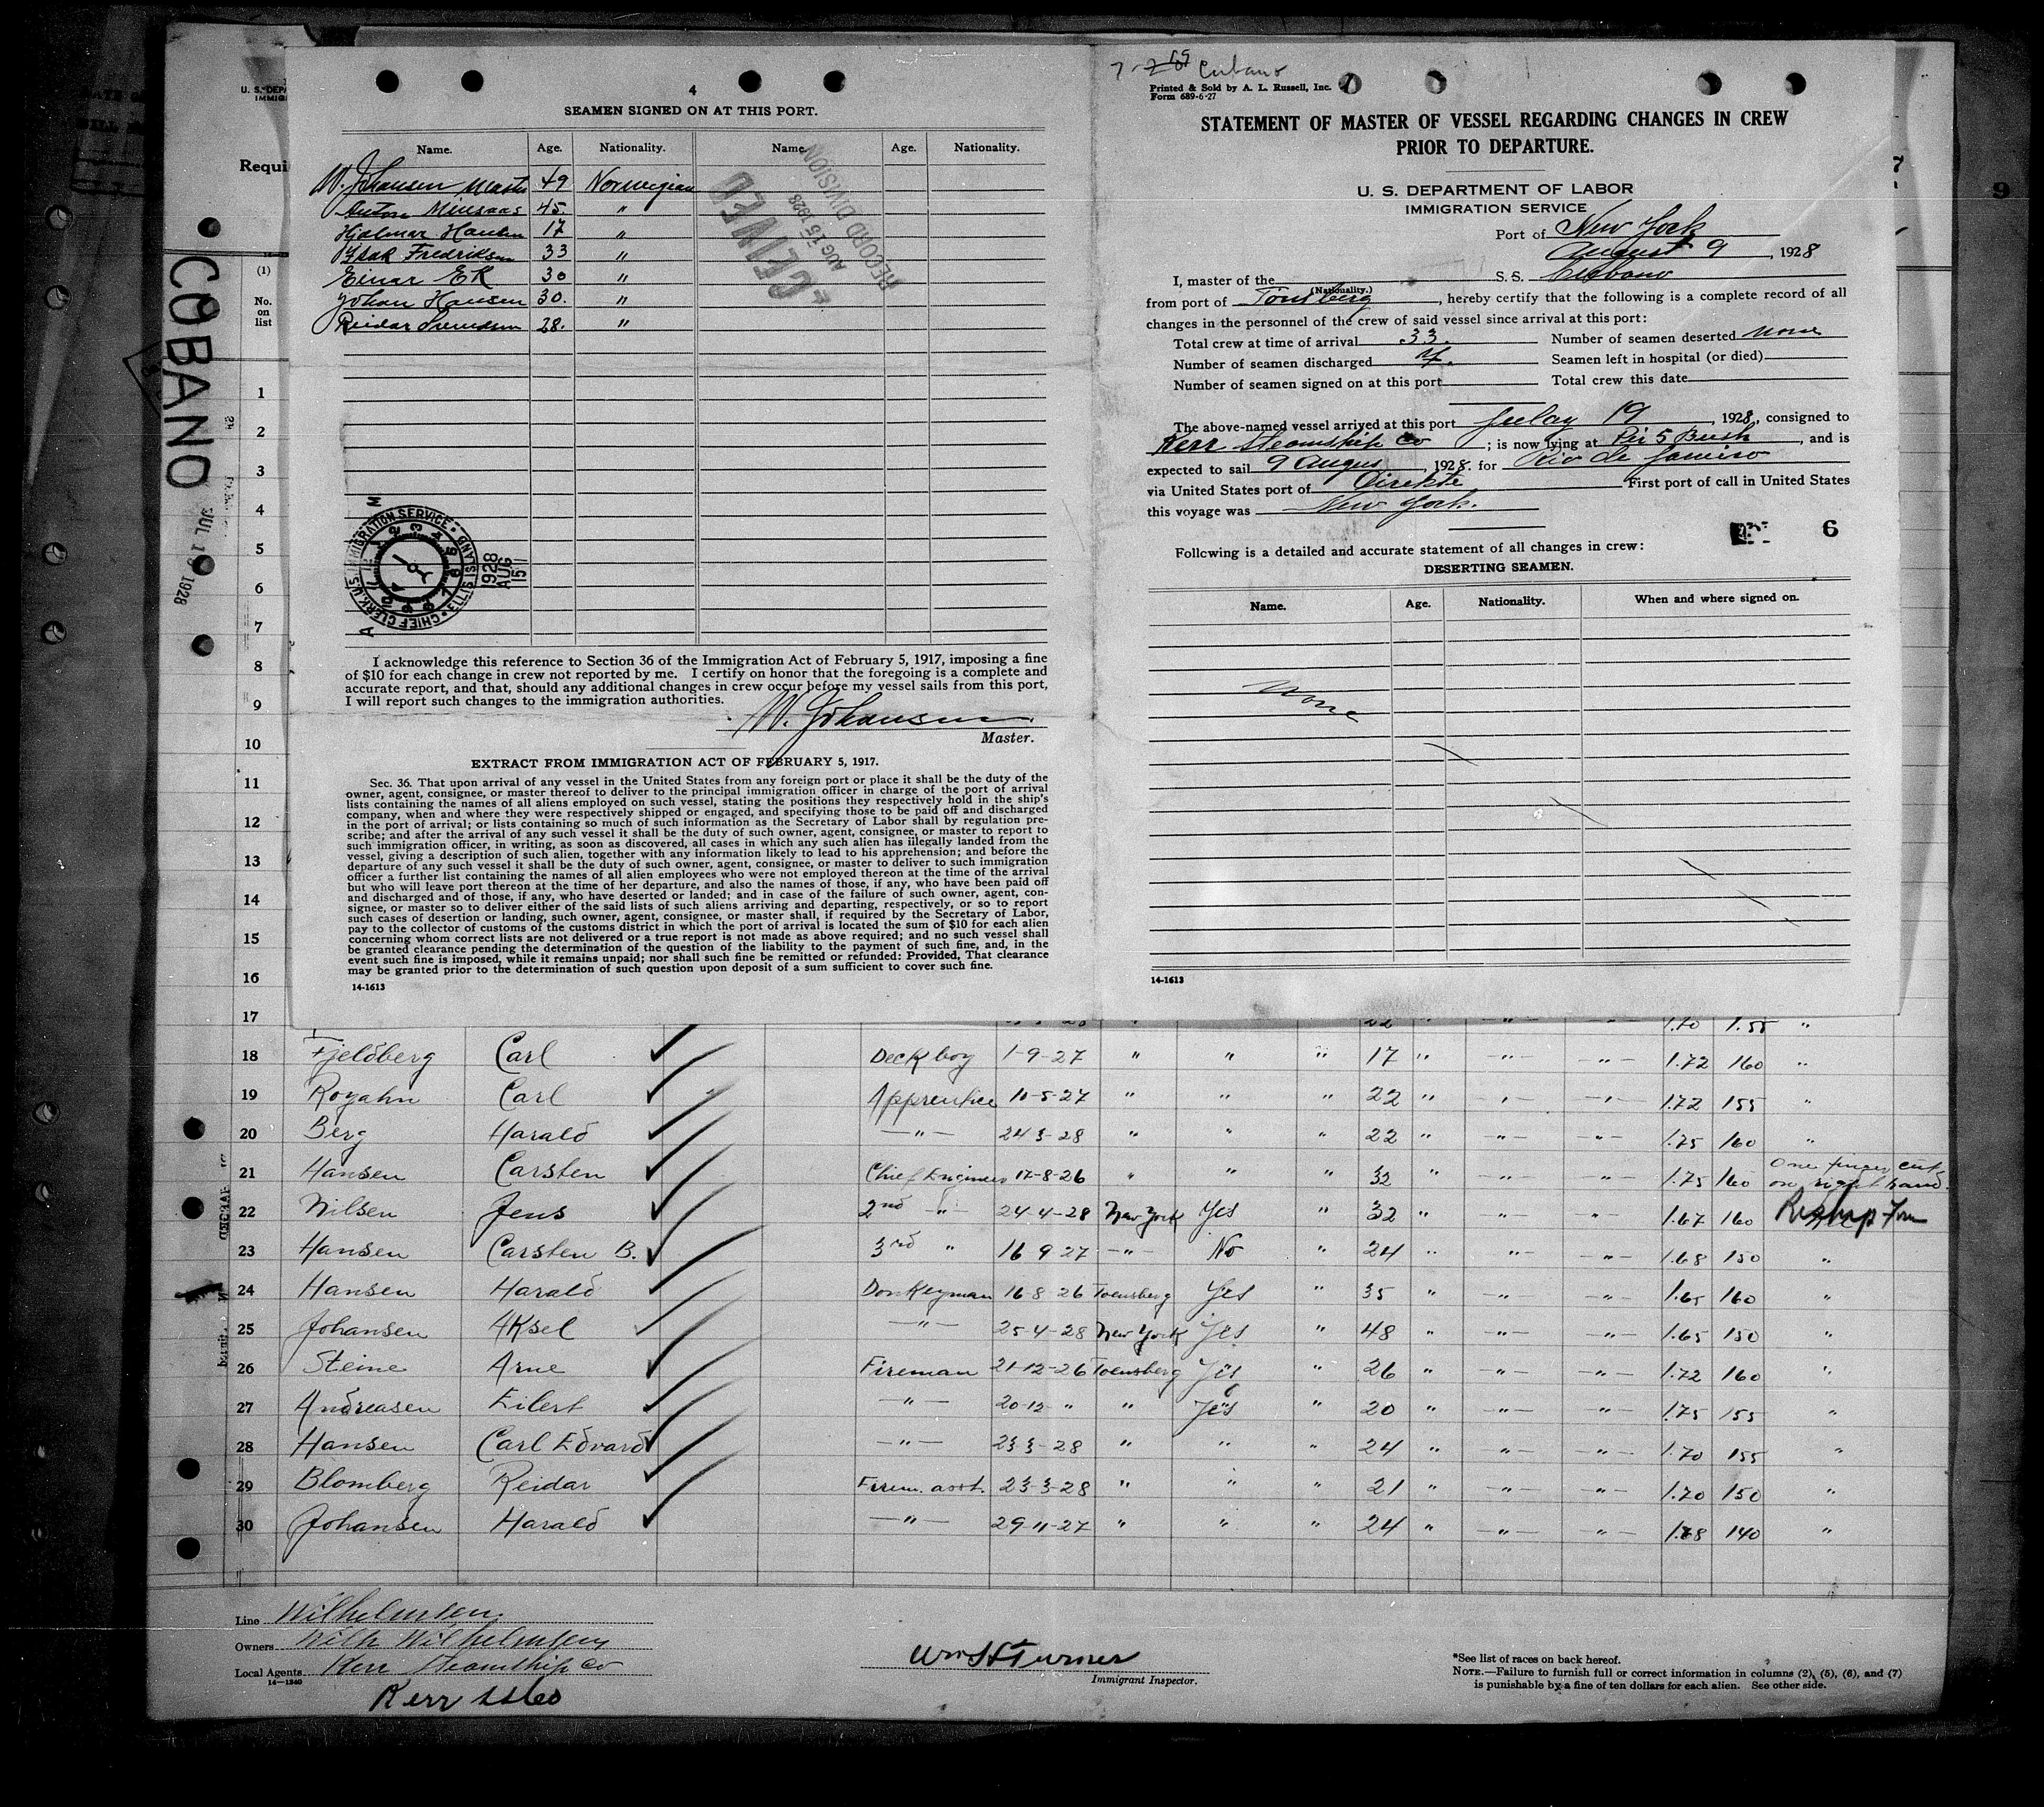 4
SEAMEN SIGNED ON AT THIS PORT.
Name. Age. Nationality. Name. Age. Nationality.
W. Johansen Master 49 Norwegian
Anton 45. "
Hjalmar Hansen 17 "
Isak Fredriksen 33 "
Einar Ek 30 "
Johan Hansen 30. "
Reidar Svendsen 28. "
RECEIVED
AUG 15 1928
RECORD DIVISION
CHIEF CLERK, U.S. IMMIGRATION SERVICE • ELLIS ISLAND
1928 AUG 15
I acknowledge this reference to Section 36 of the Immigration Act of February 5, 1917, imposing a fine
of $10 for each change in crew not reported by me. I certify on honor that the foregoing is a complete and
accurate report, and that, should any additional changes in crew occur before my vessel sails from this port,
I will report such changes to the immigration authorities.
W. Johansen
Master.
EXTRACT FROM IMMIGRATION ACT OF FEBRUARY 5, 1917.
Sec. 36. That upon arrival of any vessel in the United States from any foreign port or place it shall be the duty of the
owner, agent, consignee, or master thereof to deliver to the principal immigration officer in charge of the port of arrival
lists containing the names of all aliens employed on such vessel, stating the positions they respectively hold in the ship's
company, when and where they were respectively shipped or engaged, and specifying those to be paid off and discharged
in the port of arrival; or lists containing so much of such information as the Secretary of Labor shall by regulation pre-
scribe; and after the arrival of any such vessel it shall be the duty of such owner, agent, consignee, or master to report to
such immigration officer, in writing, as soon as discovered, all cases in which any such alien has illegally landed from the
vessel, giving a description of such alien, together with any information likely to lead to his apprehension; and before the
departure of any such vessel it shall be the duty of such owner, agent, consignee, or master to deliver to such immigration
officer a further list containing the names of all alien employees who were not employed thereon at the time of the arrival
but who will leave port thereon at the time of her departure, and also the names of those, if any, who have been paid off
and discharged and of those, if any, who have deserted or landed; and in case of the failure of such owner, agent, con-
signee, or master so to deliver either of the said lists of such aliens arriving and departing, respectively, or so to report
such cases of desertion or landing, such owner, agent, consignee, or master shall, if required by the Secretary of Labor,
pay to the collector of customs of the customs district in which the port of arrival is located the sum of $10 for each alien
concerning whom correct lists are not delivered or a true report is not made as above required; and no such vessel shall
be granted clearance pending the determination of the question of the liability to the payment of such fine, and, in the
event such fine is imposed, while it remains unpaid; nor shall such fine be remitted or refunded: Provided, That clearance
may be granted prior to the determination of such question upon deposit of a sum sufficient to cover such fine.
14-1613
Cubano
Printed & Sold by A. L. Russell, Inc.
Form 689-6-27
STATEMENT OF MASTER OF VESSEL REGARDING CHANGES IN CREW
PRIOR TO DEPARTURE.
U. S. DEPARTMENT OF LABOR
IMMIGRATION SERVICE
Port of New York
August 9, 1928
I, master of the (Nationality.) S. S. Cubano
from port of Tönsberg, hereby certify that the following is a complete record of all
changes in the personnel of the crew of said vessel since arrival at this port:
Total crew at time of arrival 33. Number of seamen deserted none
Number of seamen discharged 7. Seamen left in hospital (or died)
Number of seamen signed on at this port Total crew this date
The above-named vessel arrived at this port Julay 19, 1928, consigned to
Kerr Steamship Co; is now lying at Pir 5 Bush, and is
expected to sail 9 Augus, 1928. for Rio de Janeiro
via United States port of Direkte First port of call in United States
this voyage was New York.
6
Following is a detailed and accurate statement of all changes in crew:
DESERTING SEAMEN.
Name. Age. Nationality. When and where signed on.
None
14-1613
COBANO
JUL 19 1928
9
U. S. DEPA
IMMIG
Requi
(1)
No. on list
1
2
3
4
5
6
7
8
9
10
11
12
13
14
15
16
17 22 " 1.70 1.55 "
18 Fjeldberg Carl Deck boy 1-9-27 " " " 17 " -"- -"- 1.72 160 "
19 Royahn Carl Apprentice 10-5-27 " " " 22 " -"- -"- 1.72 155 "
20 Berg Harald -"- 24 3-28 " " " 22 " -"- -"- 1.75 160 "
21 Hansen Carsten Chief Engineer 17-8-26 " " " 32 " -"- -"- 1.75 160 One finger cut on right hand.
22 Nilsen Jens 2nd -"- 24-4-28 New York Yes " 32 " -"- -"- 1.67 160
23 Hansen Carsten B. 3rd " 16 9 27 -"- No " 24 " -"- -"- 1.68 150 "
24 Hansen Harald Donkeyman 16-8-26 Toensberg Yes " 35 " -"- -"- 1.65 160 "
25 Johansen Aksel -"- 25-4-28 New York Yes " 48 " -"- -"- 1.65 150 "
26 Steine Arne Fireman 21-12-26 Toensberg Yes " 26 " -"- -"- 1.72 160 "
27 Andreasen Eilert -"- 20-12- " " Yes " 20 " -"- -"- 1.75 155 "
28 Hansen Carl Edvard -"- 23 3-28 " " " 24 " -"- -"- 1.70 155 "
29 Blomberg Reidar Firem. asst. 23-3-28 " " " 21 " -"- -"- 1.70 150 "
30 Johansen Harald -"- 29-11-27 " " " 24 " -"- -"- 1.68 140 "
Line Wilhelmsen
Owners Wilh Wilhelmsen
Local Agents Kerr Steamship Co
14-1240
Kerr SS Co
Wm S Turner
Immigrant Inspector.
*See list of races on back hereof.
NOTE.—Failure to furnish full or correct information in columns (2), (5), (6), and (7)
is punishable by a fine of ten dollars for each alien. See other side.